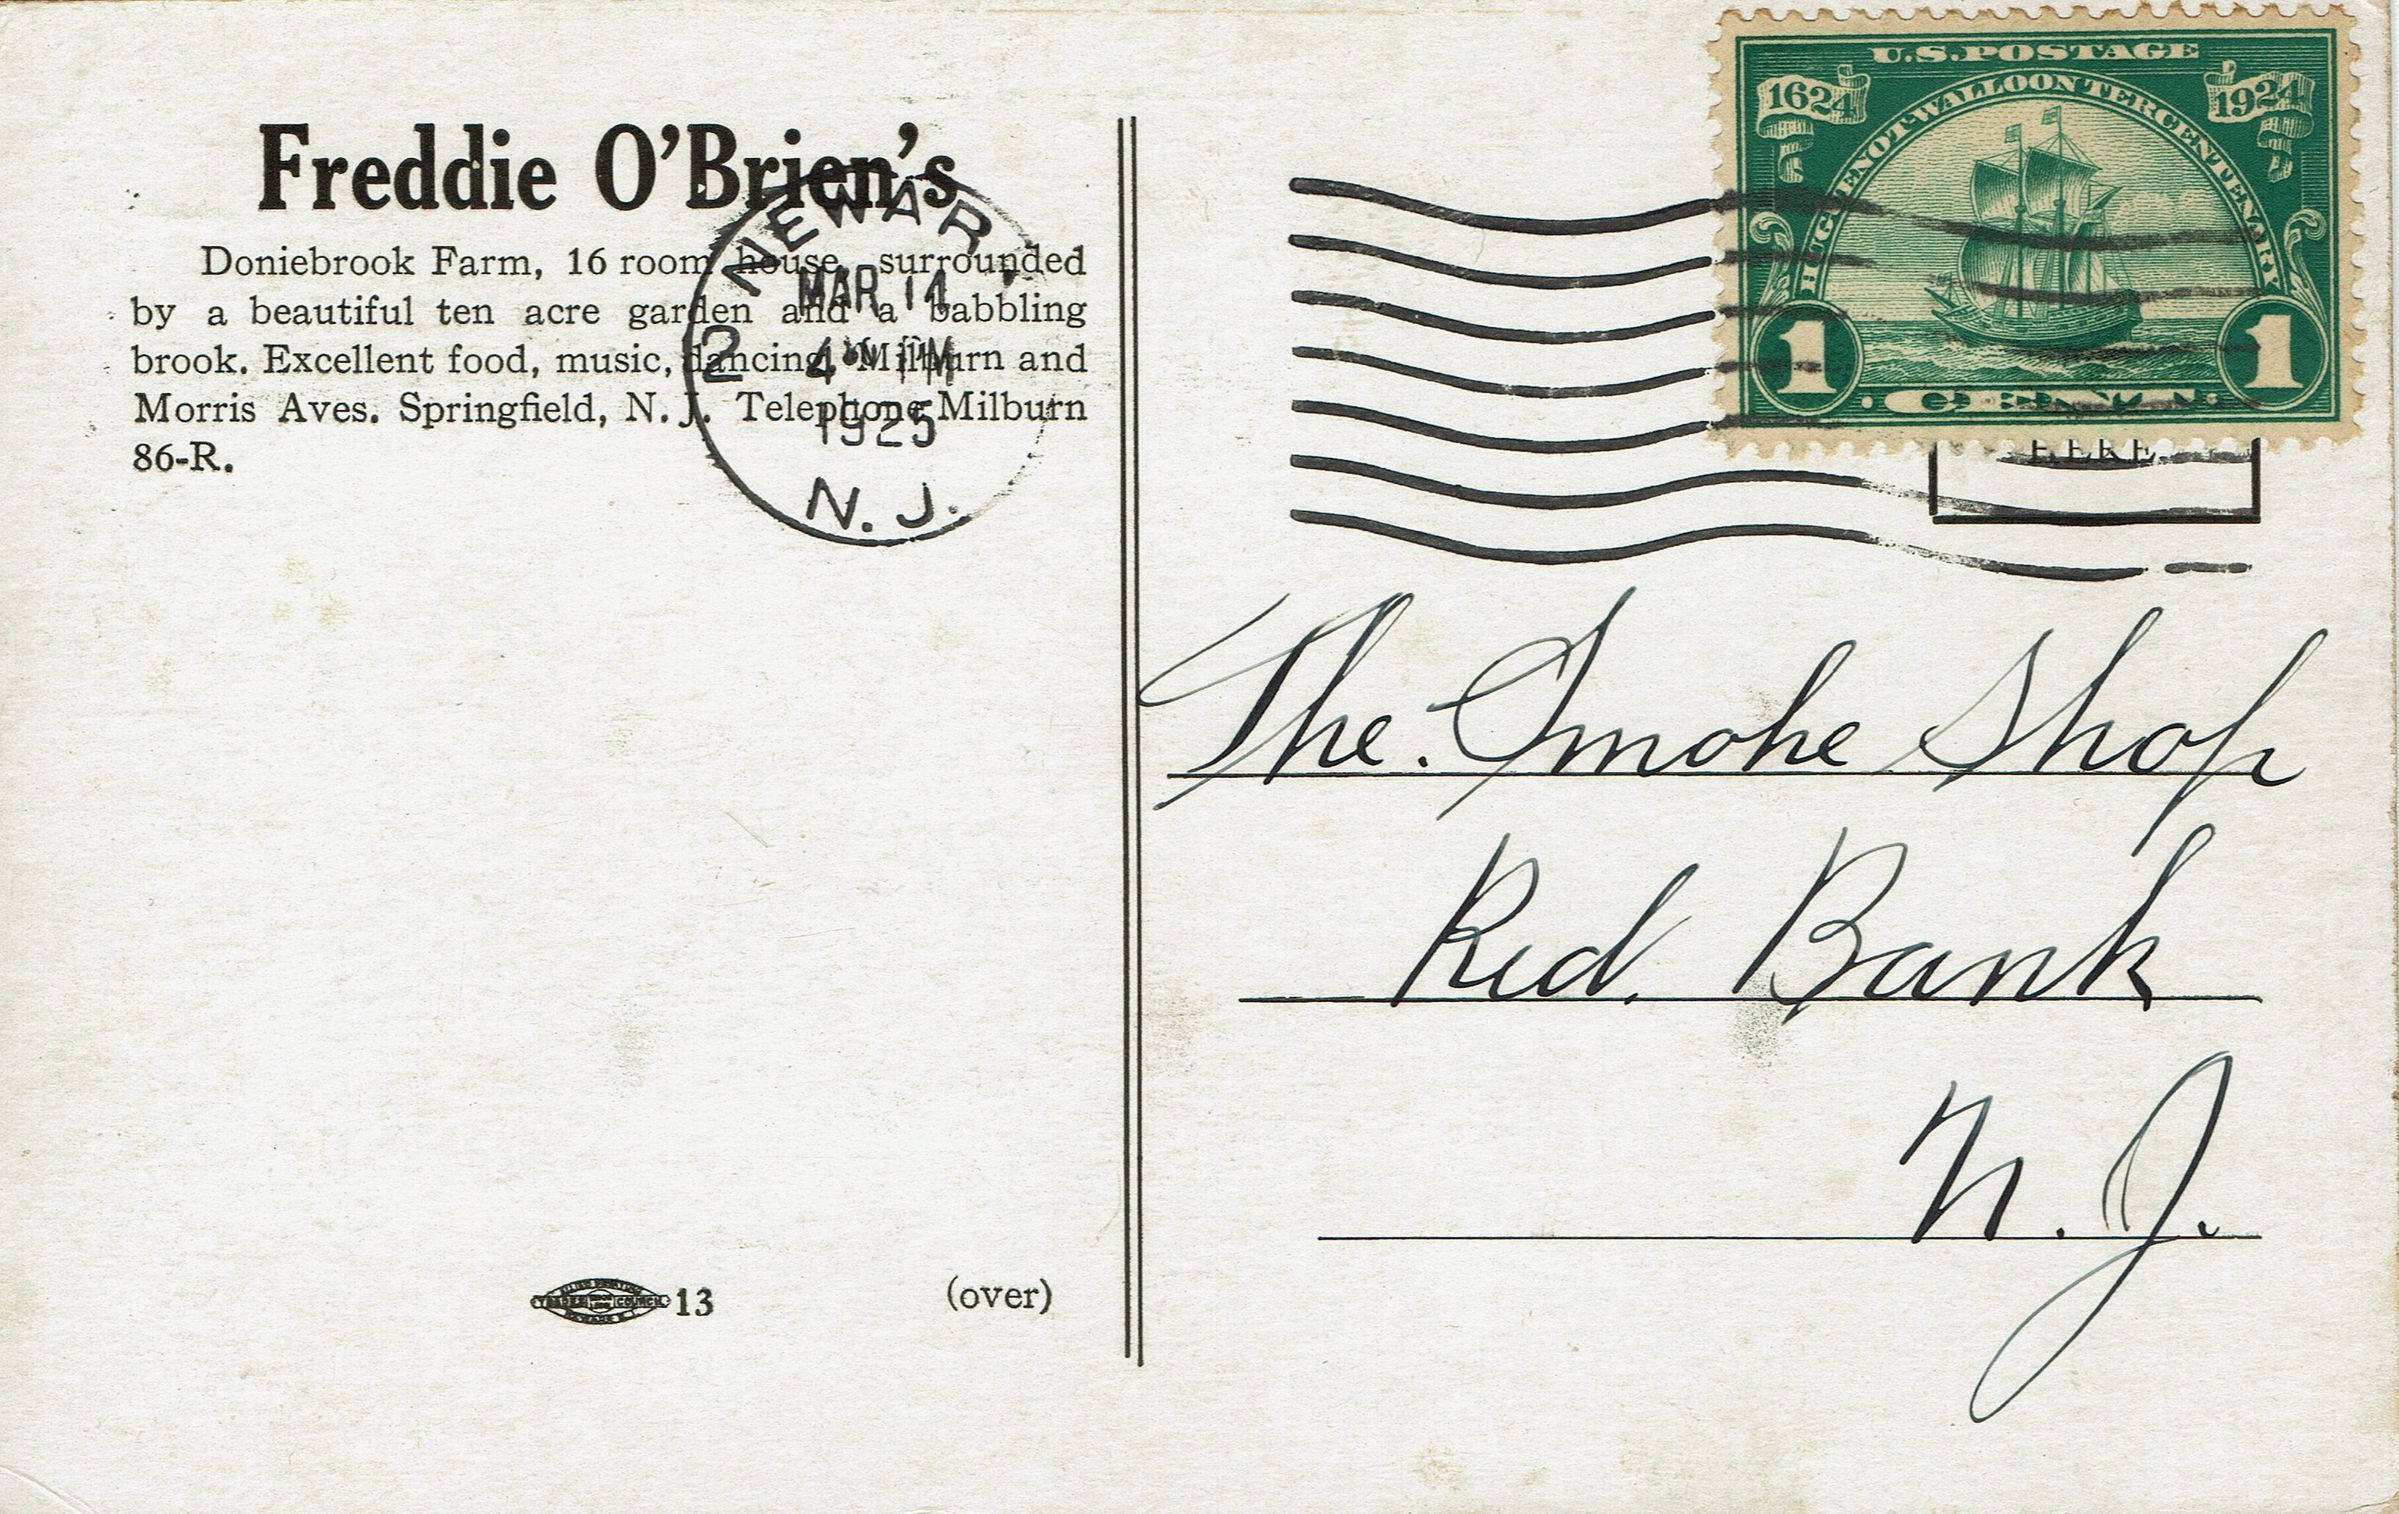 Freddie O'Brien's
Doniebrook Farm, 16 room house, surrounded
by a beautiful ten acre garden and a babbling
brook. Excellent food, music, dancing. Milburn and
Morris Aves. Springfield, N. J. Telephone Milburn
86-R.
NEWAR
MAR 14
2 4 PM
1925
N. J.
U.S. POSTAGE
1624 1924
HUGUENOT-WALLOON TERCENTENARY
1 CENT 1
HERE
The. Smoke Shop
Red. Bank
N. J.
TRADES COUNCIL 13
(over)